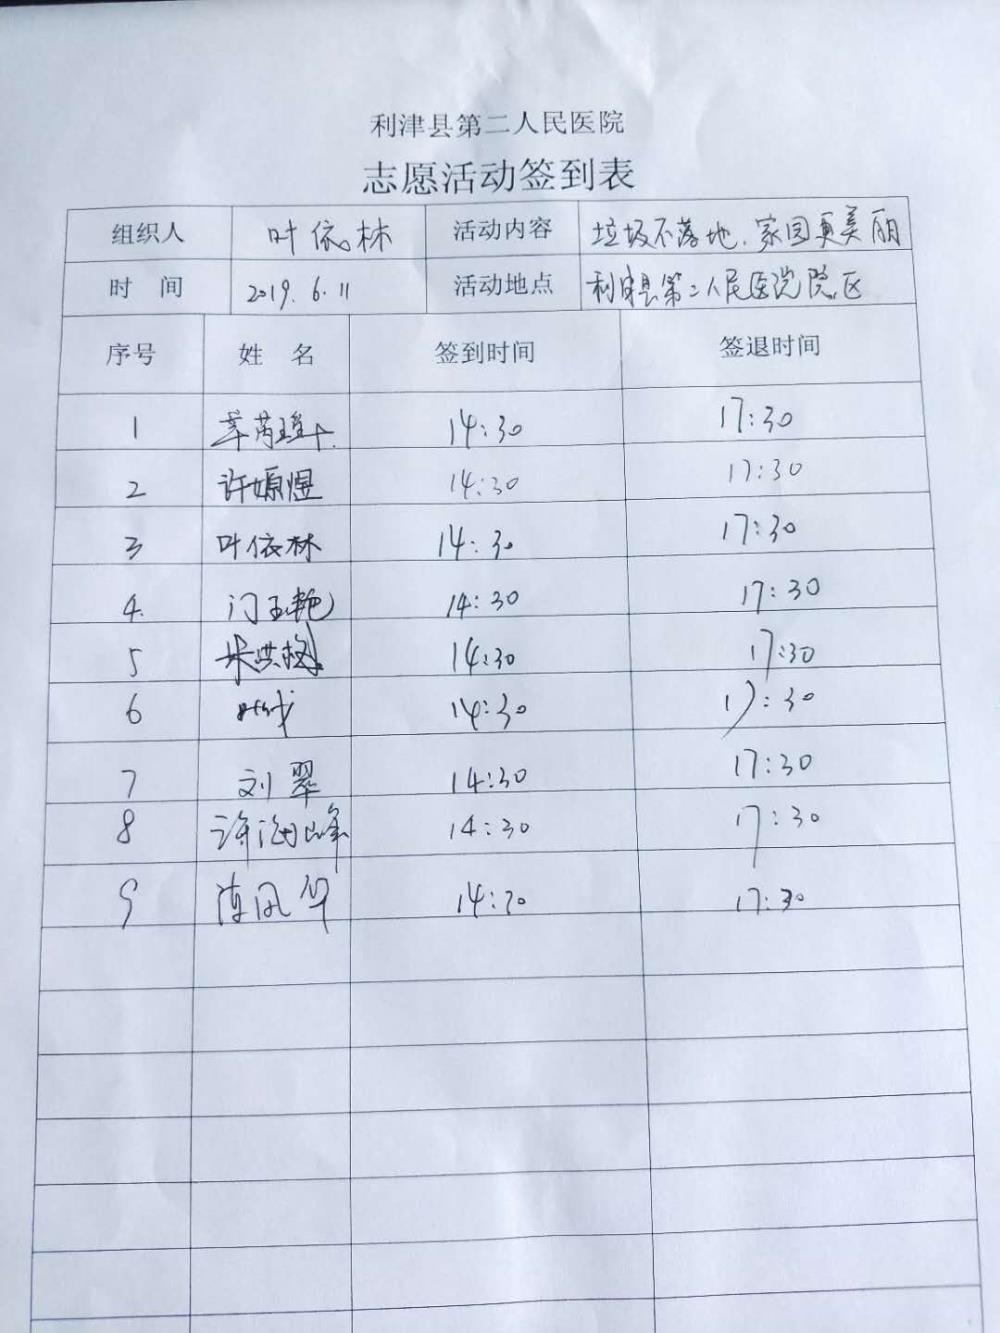 利津县第二人民医院
志愿活动签到表
组织人 叶依林 活动内容 垃圾不落地、家园更美丽
时 间 2019.6.11 活动地点 利津县第二人民医院院区
序号 姓 名 签到时间 签退时间
1 14:30 17:30
2 许嫄煜 14:30 17:30
3 叶依林 14:30 17:30
4. 门玉艳 14:30 17:30
5 14:30 17:30
6 14:30 17:30
7 刘翠 14:30 17:30
8 许海峰 14:30 17:30
9 陈凤华 14:30 17:30